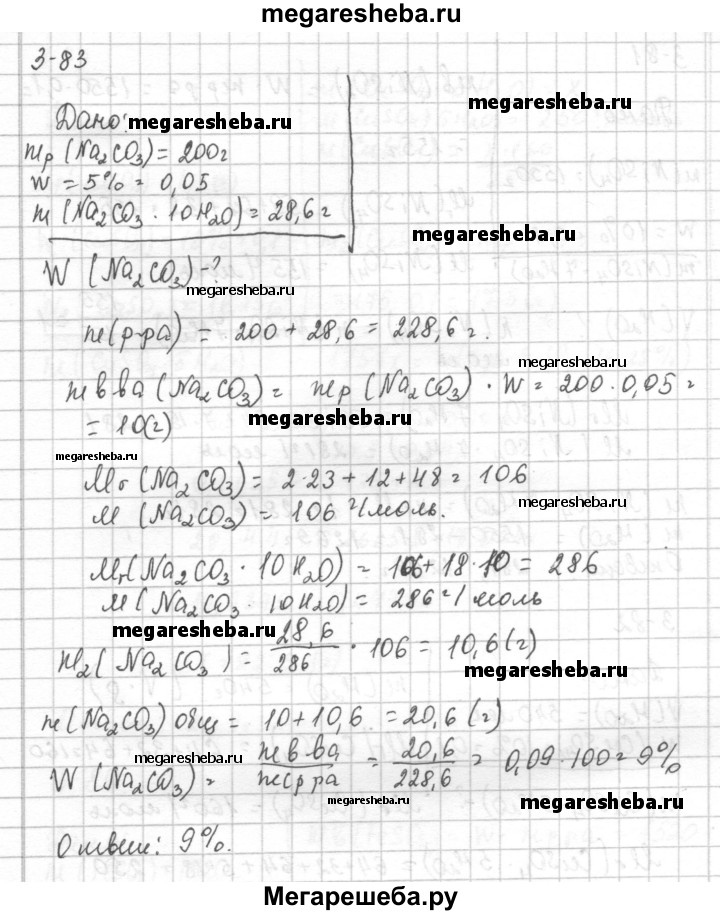 megaresheba.ru
3-83
Дано: megaresheba.ru
megaresheba.ru
mр (Na₂CO₃) = 200г
w = 5% = 0,05
m (Na₂CO₃ · 10H₂O) = 28,6 г
megaresheba.ru
W (Na₂CO₃) - ?
megaresheba.ru
m(р-ра) = 200 + 28,6 = 228,6 г.
megaresheba.ru
m в ва (Na₂CO₃) = mр (Na₂CO₃) · W = 200 · 0,05 =
= 10(г)
megaresheba.ru
megaresheba.ru
Mr (Na₂CO₃) = 2·23 + 12 + 48 = 106
M (Na₂CO₃) = 106 г/моль.
megaresheba.ru
Mr (Na₂CO₃ · 10H₂O) = 106 + 18·10 = 286
M (Na₂CO₃ · 10H₂O) = 286 г/моль
megaresheba.ru
m₂ (Na₂CO₃) = 28,6/286 · 106 = 10,6 (г)
megaresheba.ru
m (Na₂CO₃) общ = 10 + 10,6 = 20,6 (г)
megaresheba.ru
W (Na₂CO₃) = m в ва/m(р ра = 20,6/228,6 = 0,09·100 = 9%
megaresheba.ru
megaresheba.ru
Ответ: 9%.
megaresheba.ru
Мегарешеба.ру